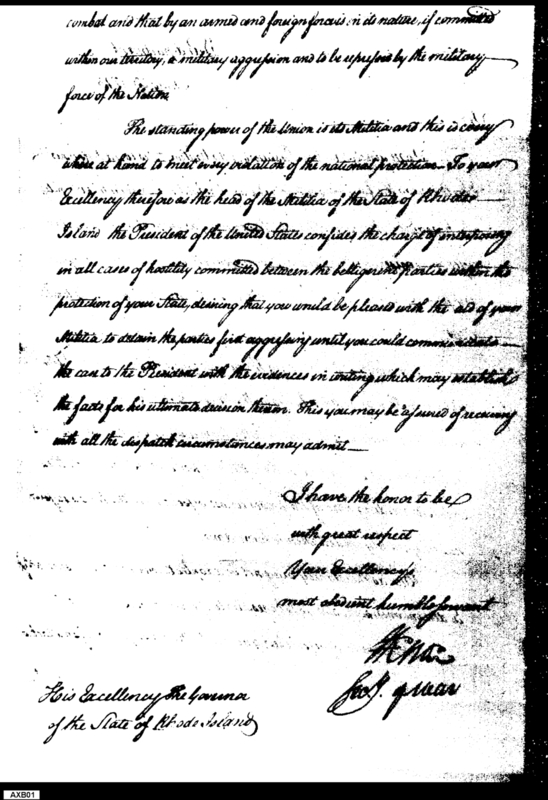 combat and that by an armed and foreign force is in its nature, if committed
within our territory, a military aggression and to be repressed by the military
force of the Nation.
The standing power of the Union is its Militia and this is every
where at hand to meet every violation of the national protection — To your
Excellency therefore as the head of the Militia of the State of Rhode
Island the President of the United States confides the charge of interposing
in all cases of hostility committed between the belligerent parties within the
protection of your State, desiring that you would be pleased with the aid of your
Militia to detain the parties first aggressing until you could communicate
the case to the President with the evidences in writing which may establish
the facts for his ultimate decision thereon. This you may be assured of receiving
with all the despatch circumstances may admit —
I have the honor to be
with great respect
Your Excellency's
most obedient humble Servant
Secy. of War
His Excellency The Governor
of the State of Rhode Island
AXB01